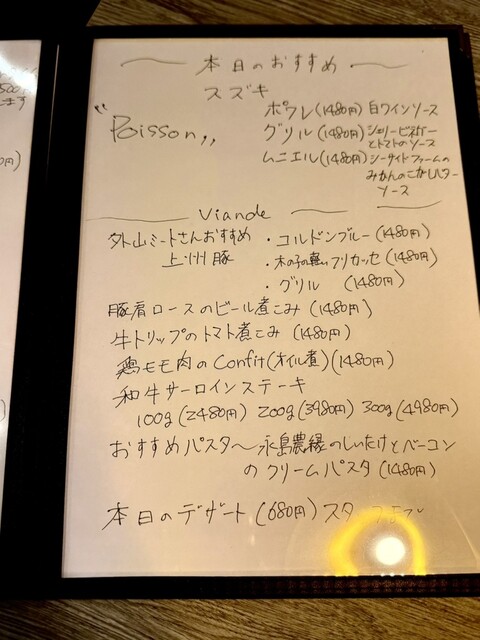 本日のおすすめ
スズキ
"Poisson"
ポワレ(1480円) 白ワインソース
グリル(1480円) シェリービネガー
とトマトのソース
ムニエル(1480円) シーサイドファームの
みかんのこがしバター
ソース
Viande
外山ミートさんおすすめ
上州豚
・コルドンブルー(1480円)
・木の子の軽いフリカッセ(1480円)
・グリル (1480円)
豚肩ロースのビール煮こみ(1480円)
牛トリップのトマト煮こみ(1480円)
鶏モモ肉のConfit(オイル煮)(1480円)
和牛サーロインステーキ
100g(2480円) 200g(3980円) 300g(4980円)
おすすめパスタ〜永島農縁のしいたけとベーコン
のクリームパスタ(1480円)
本日のデザート(680円)スタ